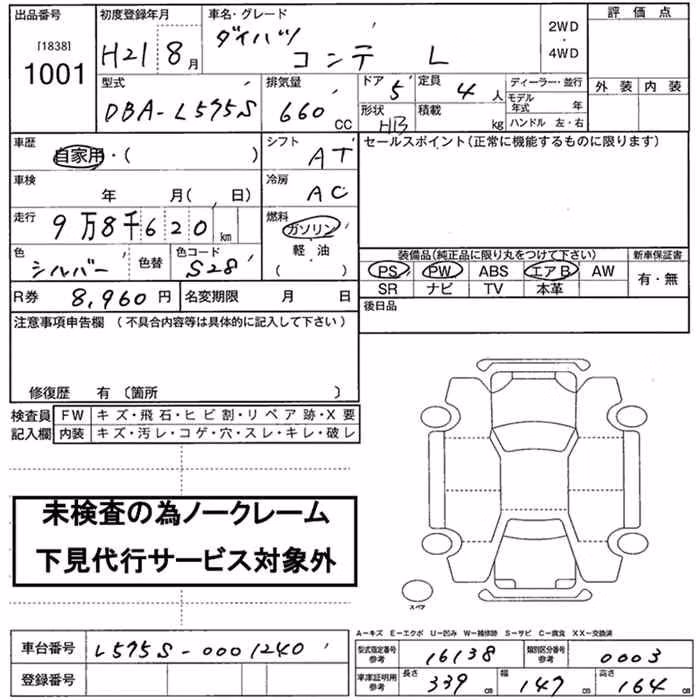 出品番号 初度登録年月 車名・グレード 評価点
[1838] H21 8月 ダイハツ 2WD
1001 コンテ L ・
4WD
型式 排気量 ドア 定員 ディーラー・並行 外装 内装
DBA-L575S 660CC 5 4人 モデル年式 年
形状 積載 ハンドル 左・右
HB kg
車歴 シフト セールスポイント(正常に機能するものに限ります)
自家用・( ) AT
車検 冷房
年 月( 日) AC
走行 燃料
9万8千620km ガソリン
色 色替 色コード 軽油 装備品(純正品に限り丸をつけて下さい) 新車保証書
シルバー S28 ( ) PS PW ABS エアB AW 有・無
SR ナビ TV 本革
R券 8,960円 名変期限 月 日 後日品
注意事項申告欄 (不具合内容等は具体的に記入して下さい)
修復歴 有 〔箇所 〕
検査員 FW キズ・飛石・ヒビ割・リペア跡・X要
記入欄 内装 キズ・汚レ・コゲ・穴・スレ・キレ・破レ
未検査の為ノークレーム
下見代行サービス対象外
スペア
A-キズ E-エクボ U-凹み W-補修跡 S-サビ C-腐食 XX-交換済
車台番号 L575S-0001240 型式指定番号 参考 16138 類別区分番号 参考 0003
登録番号 車庫証明用 参考 長さ 339cm 幅 147cm 高さ 164cm